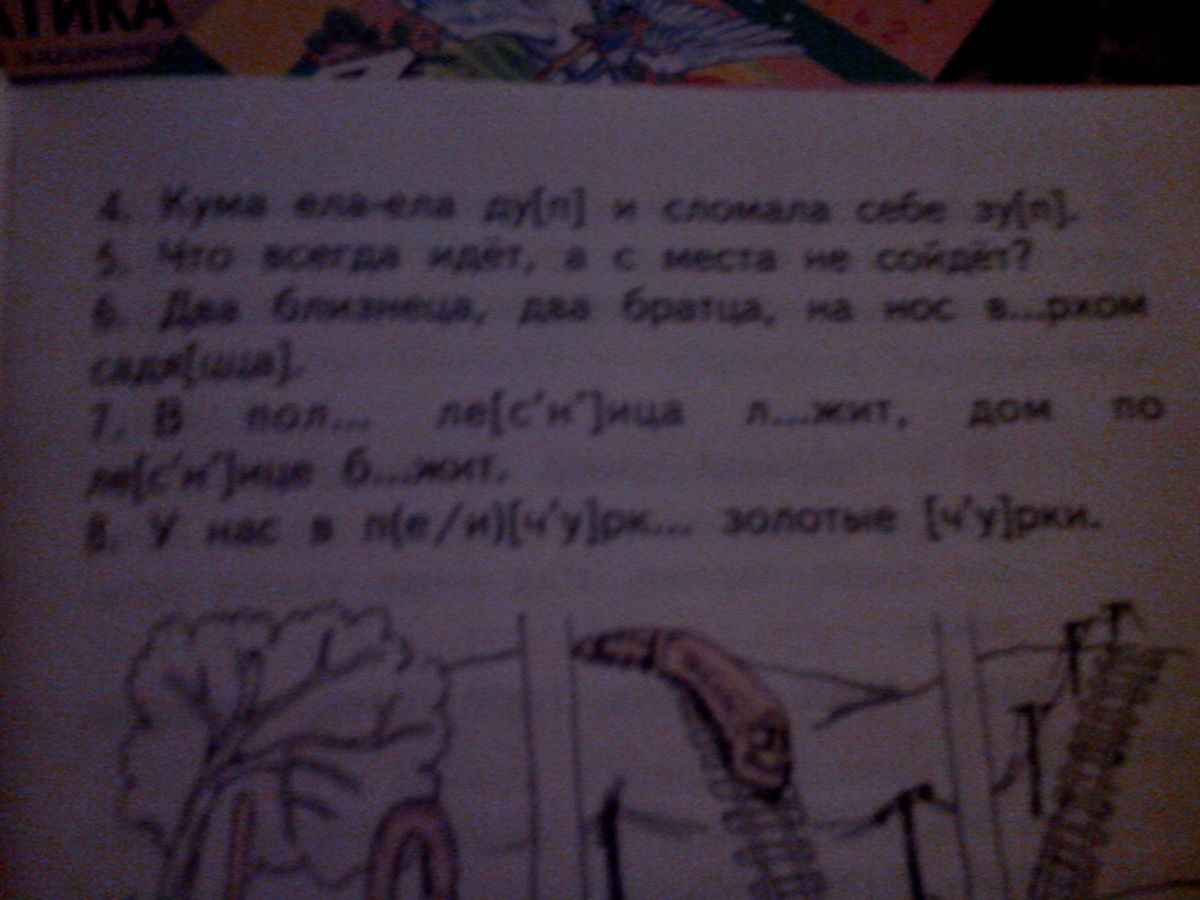 АТИКА
4. Кума ела-ела ду[п] и сломала себе зу[п].
5. Что всегда идёт, а с места не сойдёт?
6. Два близнеца, два братца, на нос в...рхом
садя[цца].
7. В пол... ле[с'н']ица л...жит, дом по
ле[с'н']ице б...жит.
8. У нас в п(е/и)[ч'у]рк... золотые [ч'у]рки.